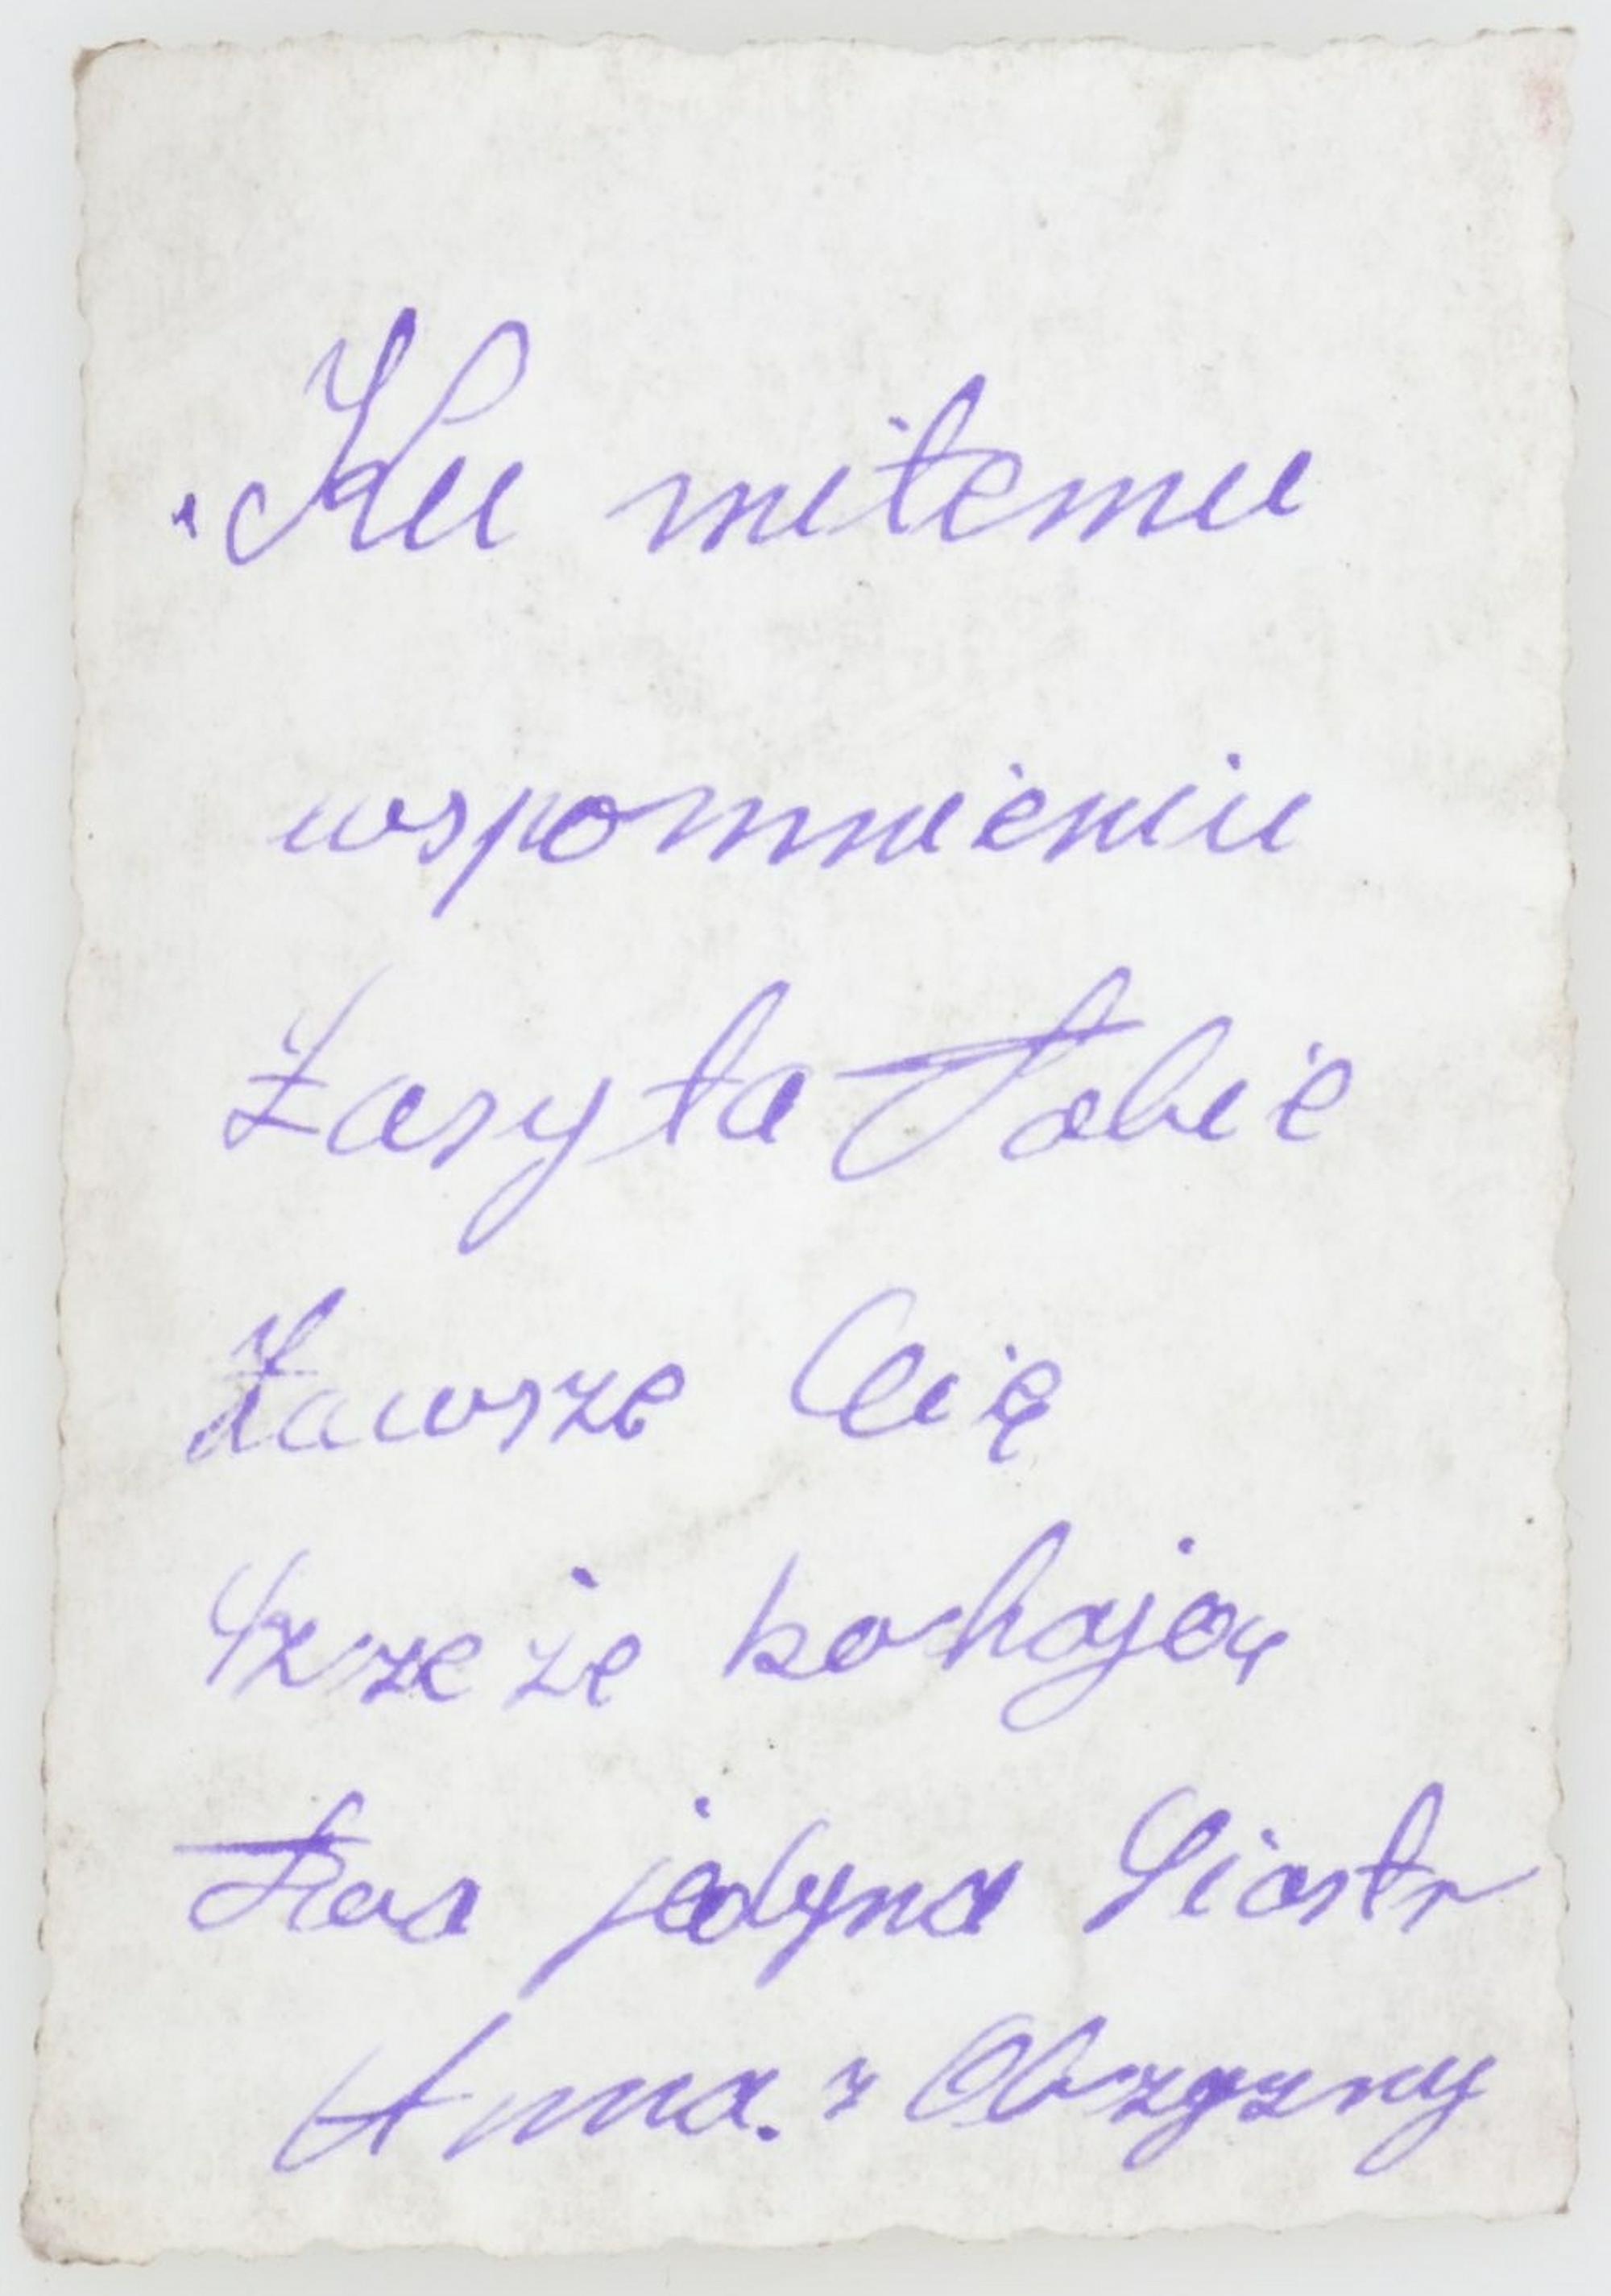 Ku miłemu
wspomnieniu
Zasyła Tobie
Zawsze Cię
Szzeże kohająq
Twa jedyna Siostr
Anna. z Obzyzny